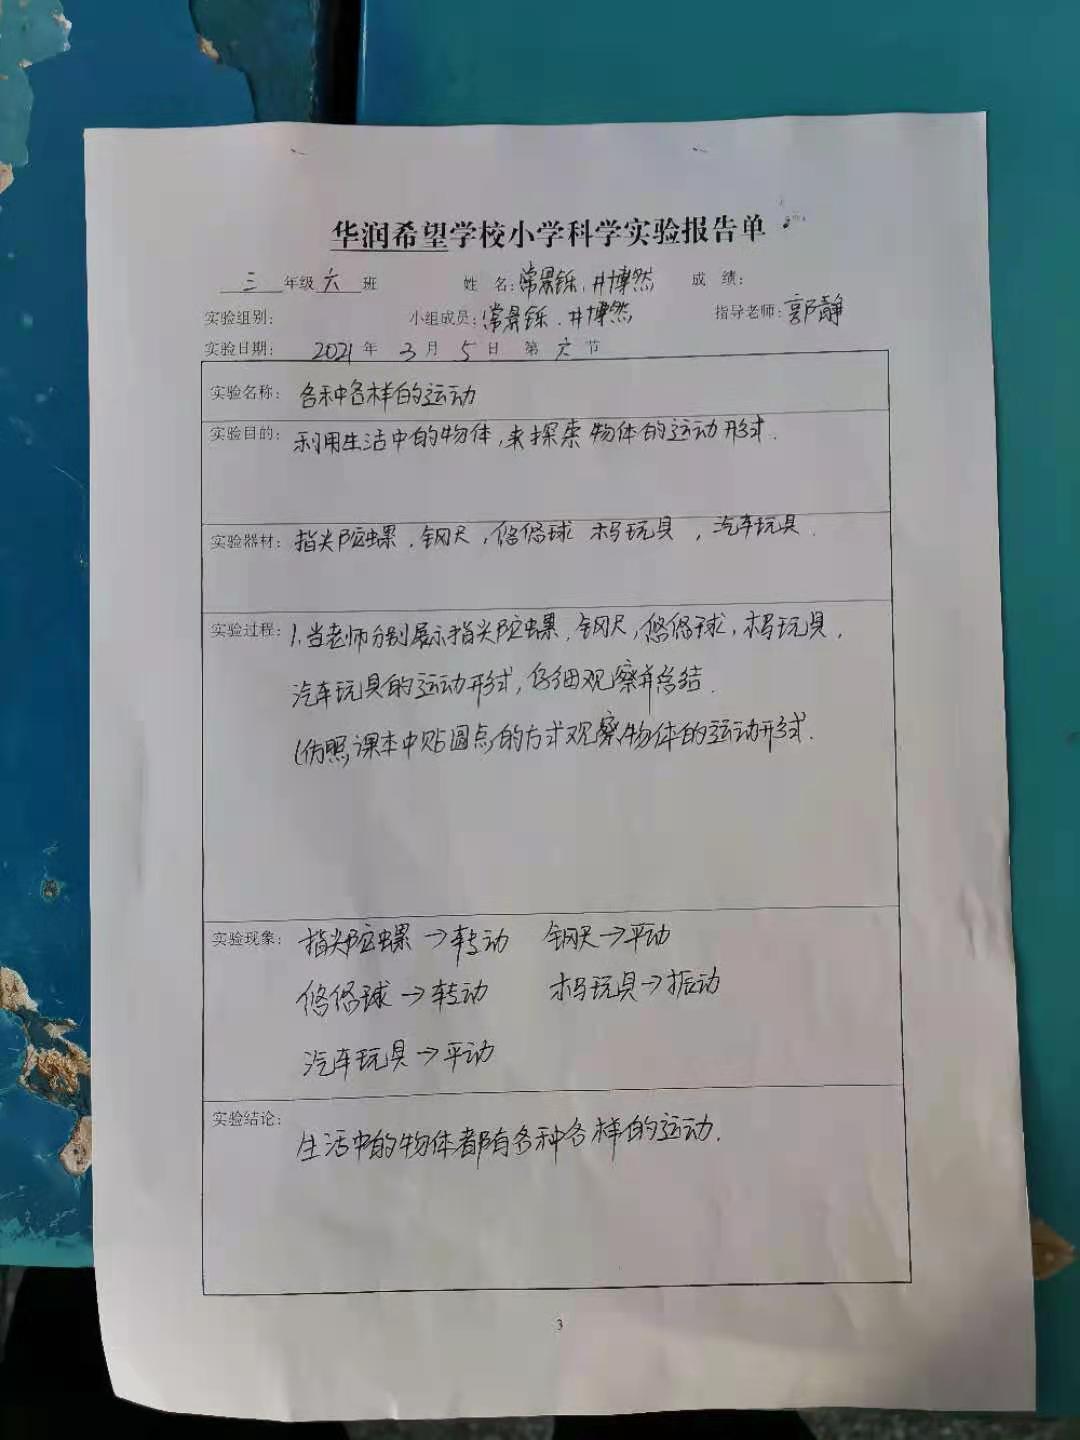 华润希望学校小学科学实验报告单
三年级六班 姓 名:常景铄、井博然 成 绩:
实验组别: 小组成员:常景铄、井博然 指导老师:郭静
实验日期: 2021年 3月 5日 第六节
实验名称: 各种各样的运动
实验目的: 利用生活中的物体,来探索物体的运动形式.
实验器材: 指尖陀螺,钢尺,悠悠球 木马玩具,汽车玩具.
实验过程: 1.当老师分别展示指尖陀螺,钢尺,悠悠球,木马玩具,
汽车玩具的运动形式,仔细观察并总结.
(仿照课本中贴圆点的方式观察物体的运动形式.
实验现象: 指尖陀螺→转动 钢尺→平动
悠悠球→转动 木马玩具→振动
汽车玩具→平动
实验结论: 生活中的物体都有各种各样的运动.
3